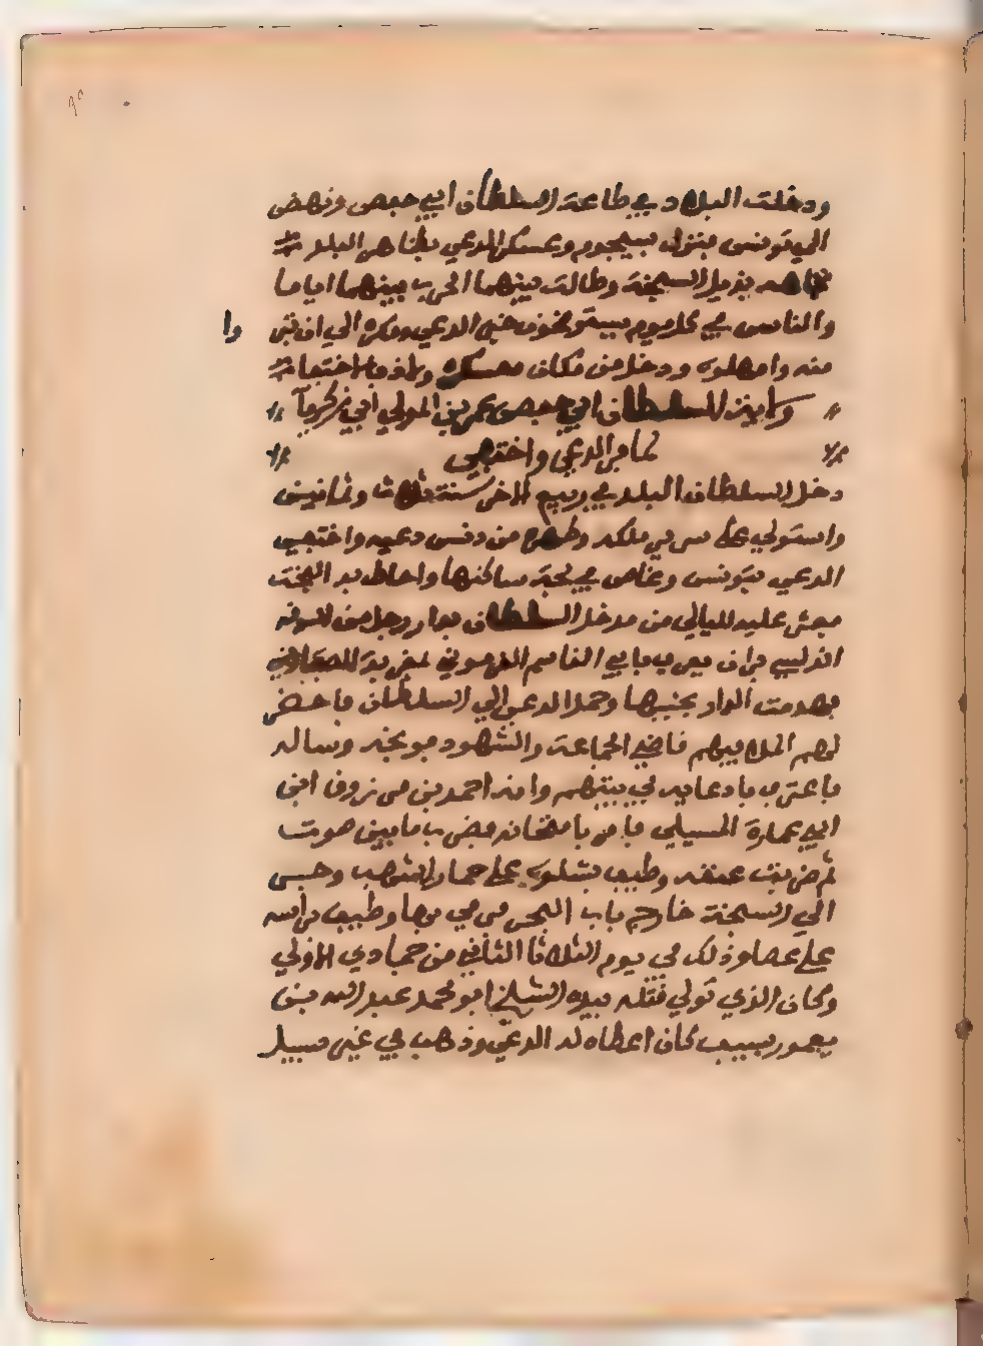 ودخلت البلاد في طاعة السلطان ابي حفص ونهض
الي تونس فنزل بسيجوم وعسكر الدعي بظاهر البلد
بذيل السبخة وطالت بينهما الحرب بينهما اياما
والناس في كل يوم يستوضحون خبر الدعي ومكره الي ان تبر وا
منه وامهلوه ودخل من مكان معسكره ولاذ بالاختفا
السلطان ابي حفص عمر بن المولي ابي زكريآ
لما فر الدعي واختفي
دخل السلطان البلد في ربيع الاخر سنة ثلاث وثمانين
واستولي علي سرير ملكه وطهره من دنس دعيه واختفي
الدعي بتونس وغاص في لجة ساكنها واحاط به البحث
فعثر عليه لليالي من مدخل السلطان بدار رجل من السوقه
اندلسي يعرف بابي القاسم القرموني
فهدمت الدار بجنبها وحمل الدعي الي السلطان فاحضر
لهم الملا فيهم قاضي الجماعة والشهود فوبخه وساله
فاعترف بادعايه في بيتهم وانه احمد بن مرزوق ابن
ابي عمارة المسيلي فامر بامتحانه فضرب مايين صوت
ثم ضربت عنقه وطيف بشلوه علي حمار اشهب
الي السبخة خارج باب البحر فرمي بها وطيف براسه
علي عصا وذلك في يوم الثلاثا الثاني من جمادي الاولي
وكان الذي تولي قتله بيده الشيخ ابو محمد عبد الله بن
يغمور بسيف كان اعطاه له الدعي وذهب في غير سبيل